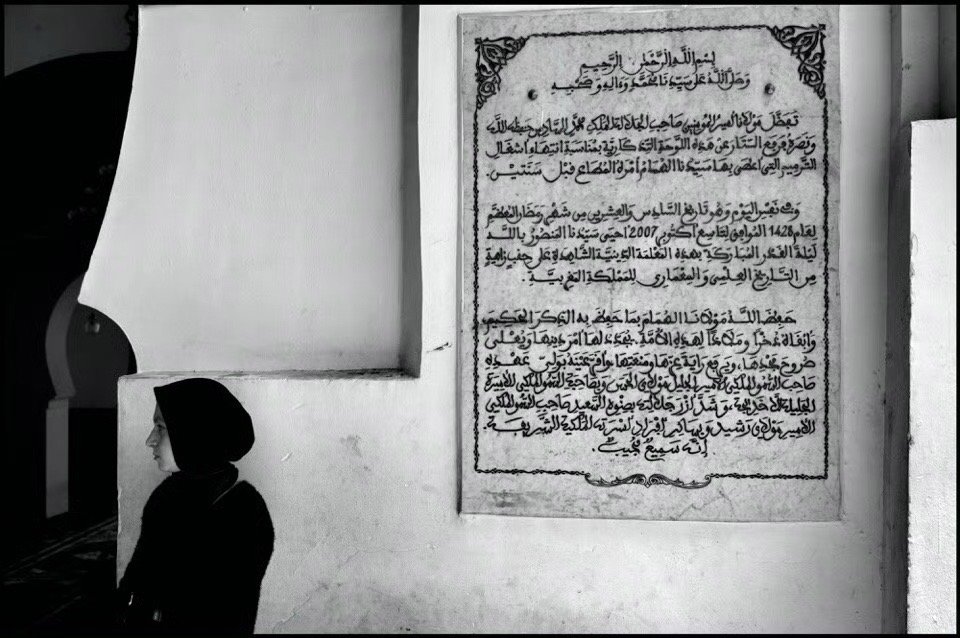 بسم الله الرحمن الرحيم
وصلى الله على سيدنا محمد وءاله وصحبه
تفضل مولانا أمير المومنين صاحب الجلالة الملك محمد السادس حفظه الله
ونصره فرفع الستار عن هذه اللوحة التذكارية بمناسبة انتهاء أشغال
الترميم التي أعطى بها سيدنا الهمام أمره المطاع قبل سنتين.
وفي نفس اليوم وهو تاريخ السادس والعشرين من شهر رمضان المعظم
لعام 1428 الموافق لتاسع أكتوبر 2007 أحيى سيدنا المنصور بالله
ليلة القدر المباركة بهذه المعلمة الدينية الشاهدة على حقب زاهية
من التاريخ العلمي والمعماري للمملكة المغربية.
حفظ الله مولانا الهمام بما حفظ به الذكر الحكيم
وأبقاه ذخرا وملاذا لهذه الأمة يجدد لها أمر دينها ويعلي
صروح مجدها، ويرفع راية عزها ومنعتها وأقر عينه بولي عهده
صاحب السمو الملكي الأمير الجليل مولاي الحسن وبصاحبة السمو الملكي الأميرة
الجليلة للا خديجة، وشد أزر جلالته بصنوه السعيد صاحب السمو الملكي
الأمير مولاي رشيد وبسائر أفراد أسرته الملكية الشريفة.
إنه سميع مجيب.